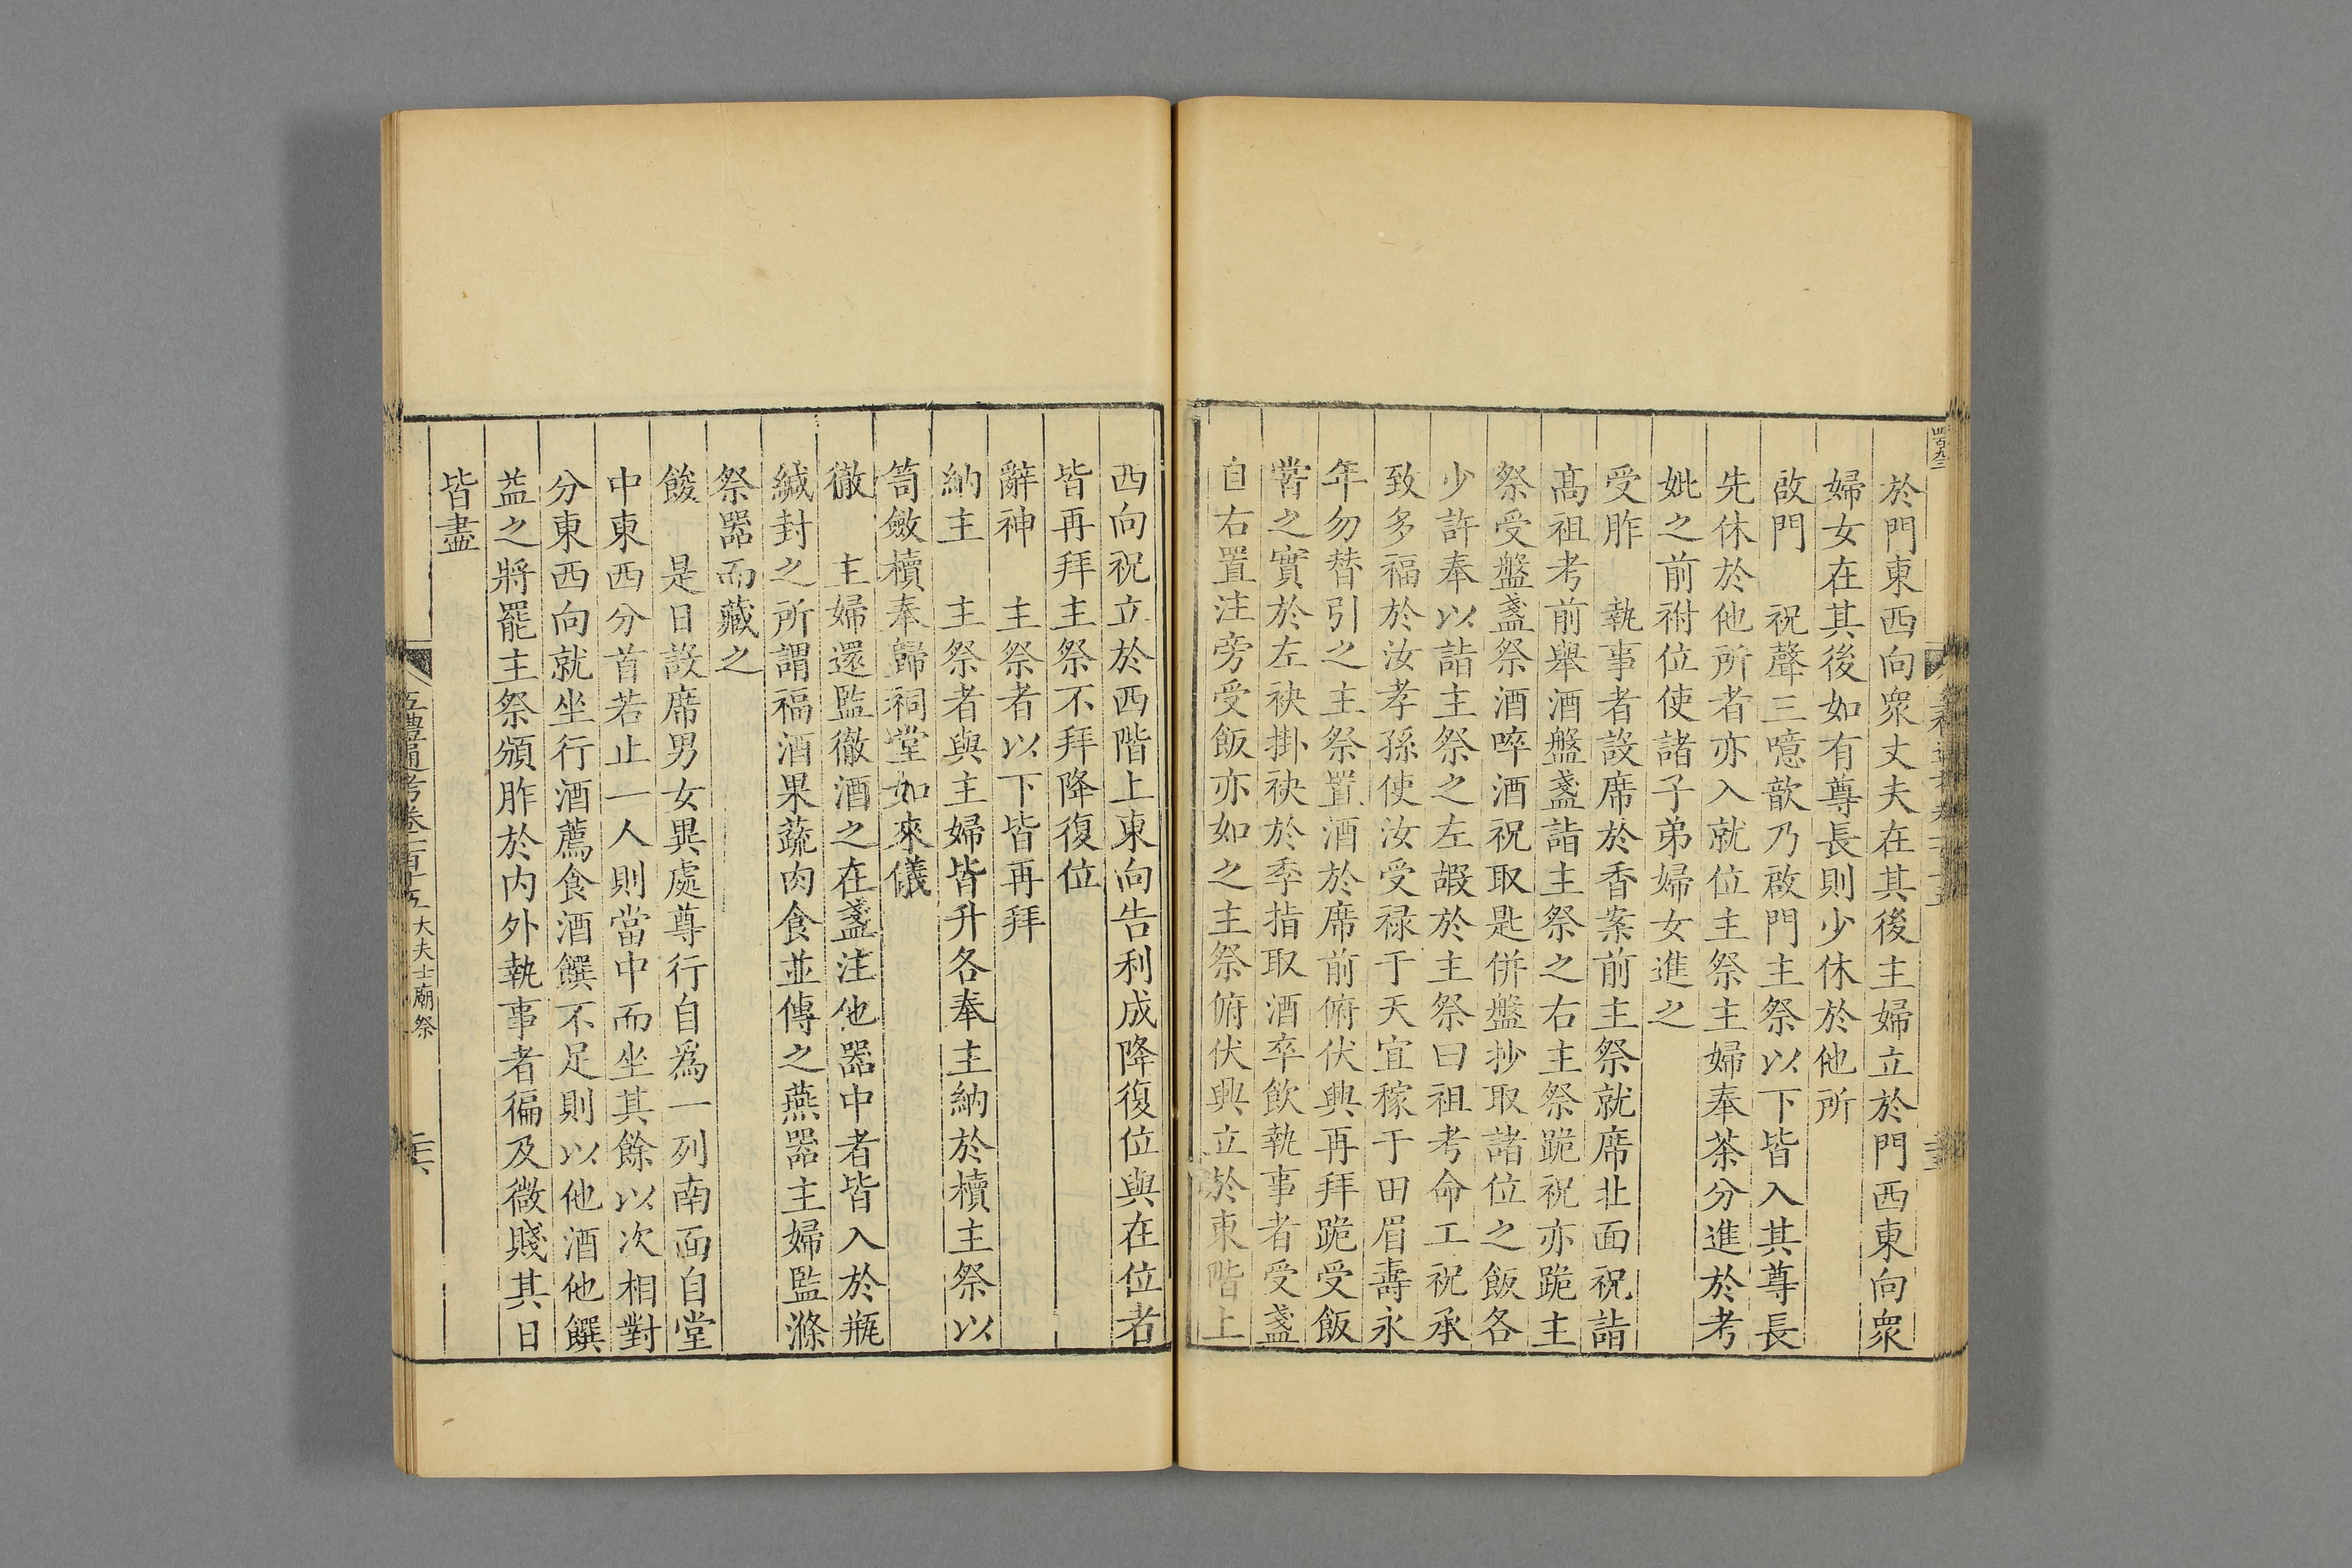 於門東西向衆丈夫在其後主婦立於門西東向衆
婦女在其後如有尊長則少休於他所
啟門　祝聲三噫歆乃啟門主祭以下皆入其尊長
先休於他所者亦入就位主祭主婦奉茶分進於考
妣之前祔位使諸子弟婦女進之
受胙　執事者設席於香案前主祭就席北面祝詣
高祖考前舉酒盤盞詣主祭之右主祭跪祝亦跪主
祭受盤盞祭酒啐酒祝取匙併盤抄取諸位之飯各
少許奉以詣主祭之左嘏於主祭曰祖考命工祝承
致多福於汝孝孫使汝受禄于天宜稼于田眉壽永
年勿替引之主祭置酒於席前俯伏興再拜跪受飯
嘗之實於左袂掛袂於季指取酒卒飲執事者受盞
自右置注旁受飯亦如之主祭俯伏興立於東階上
西向祝立於西階上東向告利成降復位與在位者
皆再拜主祭不拜降復位
辭神　主祭者以下皆再拜
納主　主祭者與主婦皆升各奉主納於櫝主祭以
笥斂櫝奉歸祠堂如來儀
徹　主婦還監徹酒之在盞注他器中者皆入於瓶
緘封之所謂福酒果蔬肉食並傳之燕器主婦監滌
祭器而藏之
餕　是日設席男女異處尊行自爲一列南面自堂
中東西分首若止一人則當中而坐其餘以次相對
分東西向就坐行酒薦食酒饌不足則以他酒他饌
益之將罷主祭頒胙於内外執事者徧及微賤其日
皆盡
五禮通考卷一百十五 大夫士廟祭